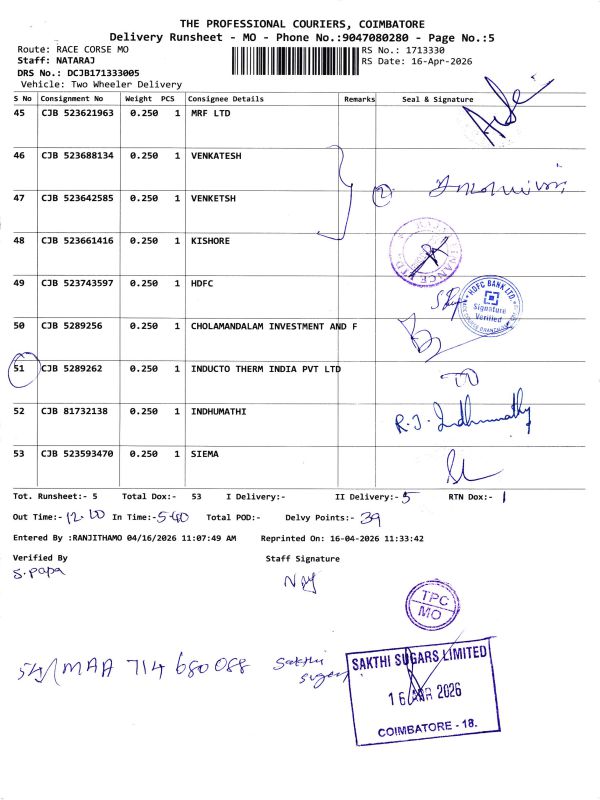 THE PROFESSIONAL COURIERS, COIMBATORE
Delivery Runsheet - MO - Phone No.:9047080280 - Page No.:5
Route: RACE CORSE MO
RS No.: 1713330
Staff: NATARAJ
RS Date: 16-Apr-2026
DRS No.: DCJB171333005
Vehicle: Two Wheeler Delivery
S No Consignment No Weight PCS Consignee Details Remarks Seal & Signature
45 CJB 523621963 0.250 1 MRF LTD
46 CJB 523688134 0.250 1 VENKATESH
47 CJB 523642585 0.250 1 VENKETSH
2
48 CJB 523661416 0.250 1 KISHORE
49 CJB 523743597 0.250 1 HDFC
HDFC BANK LTD.
Signature
Verified
50 CJB 5289256 0.250 1 CHOLAMANDALAM INVESTMENT AND F
51 CJB 5289262 0.250 1 INDUCTO THERM INDIA PVT LTD
TO
52 CJB 81732138 0.250 1 INDHUMATHI
R.J. Indhumathy
53 CJB 523593470 0.250 1 SIEMA
Tot. Runsheet:- 5 Total Dox:- 53 I Delivery:- II Delivery:- 5 RTN Dox:- 1
Out Time:- 12.00 In Time:- 5.40 Total POD:- Delvy Points:- 39
Entered By :RANJITHAMO 04/16/2026 11:07:49 AM Reprinted On: 16-04-2026 11:33:42
Verified By Staff Signature
S. Papa
TPC
MO
54/ MAA 714 680088 Sakthi
Sugar
SAKTHI SUGARS LIMITED
16 APR 2026
COIMBATORE - 18.